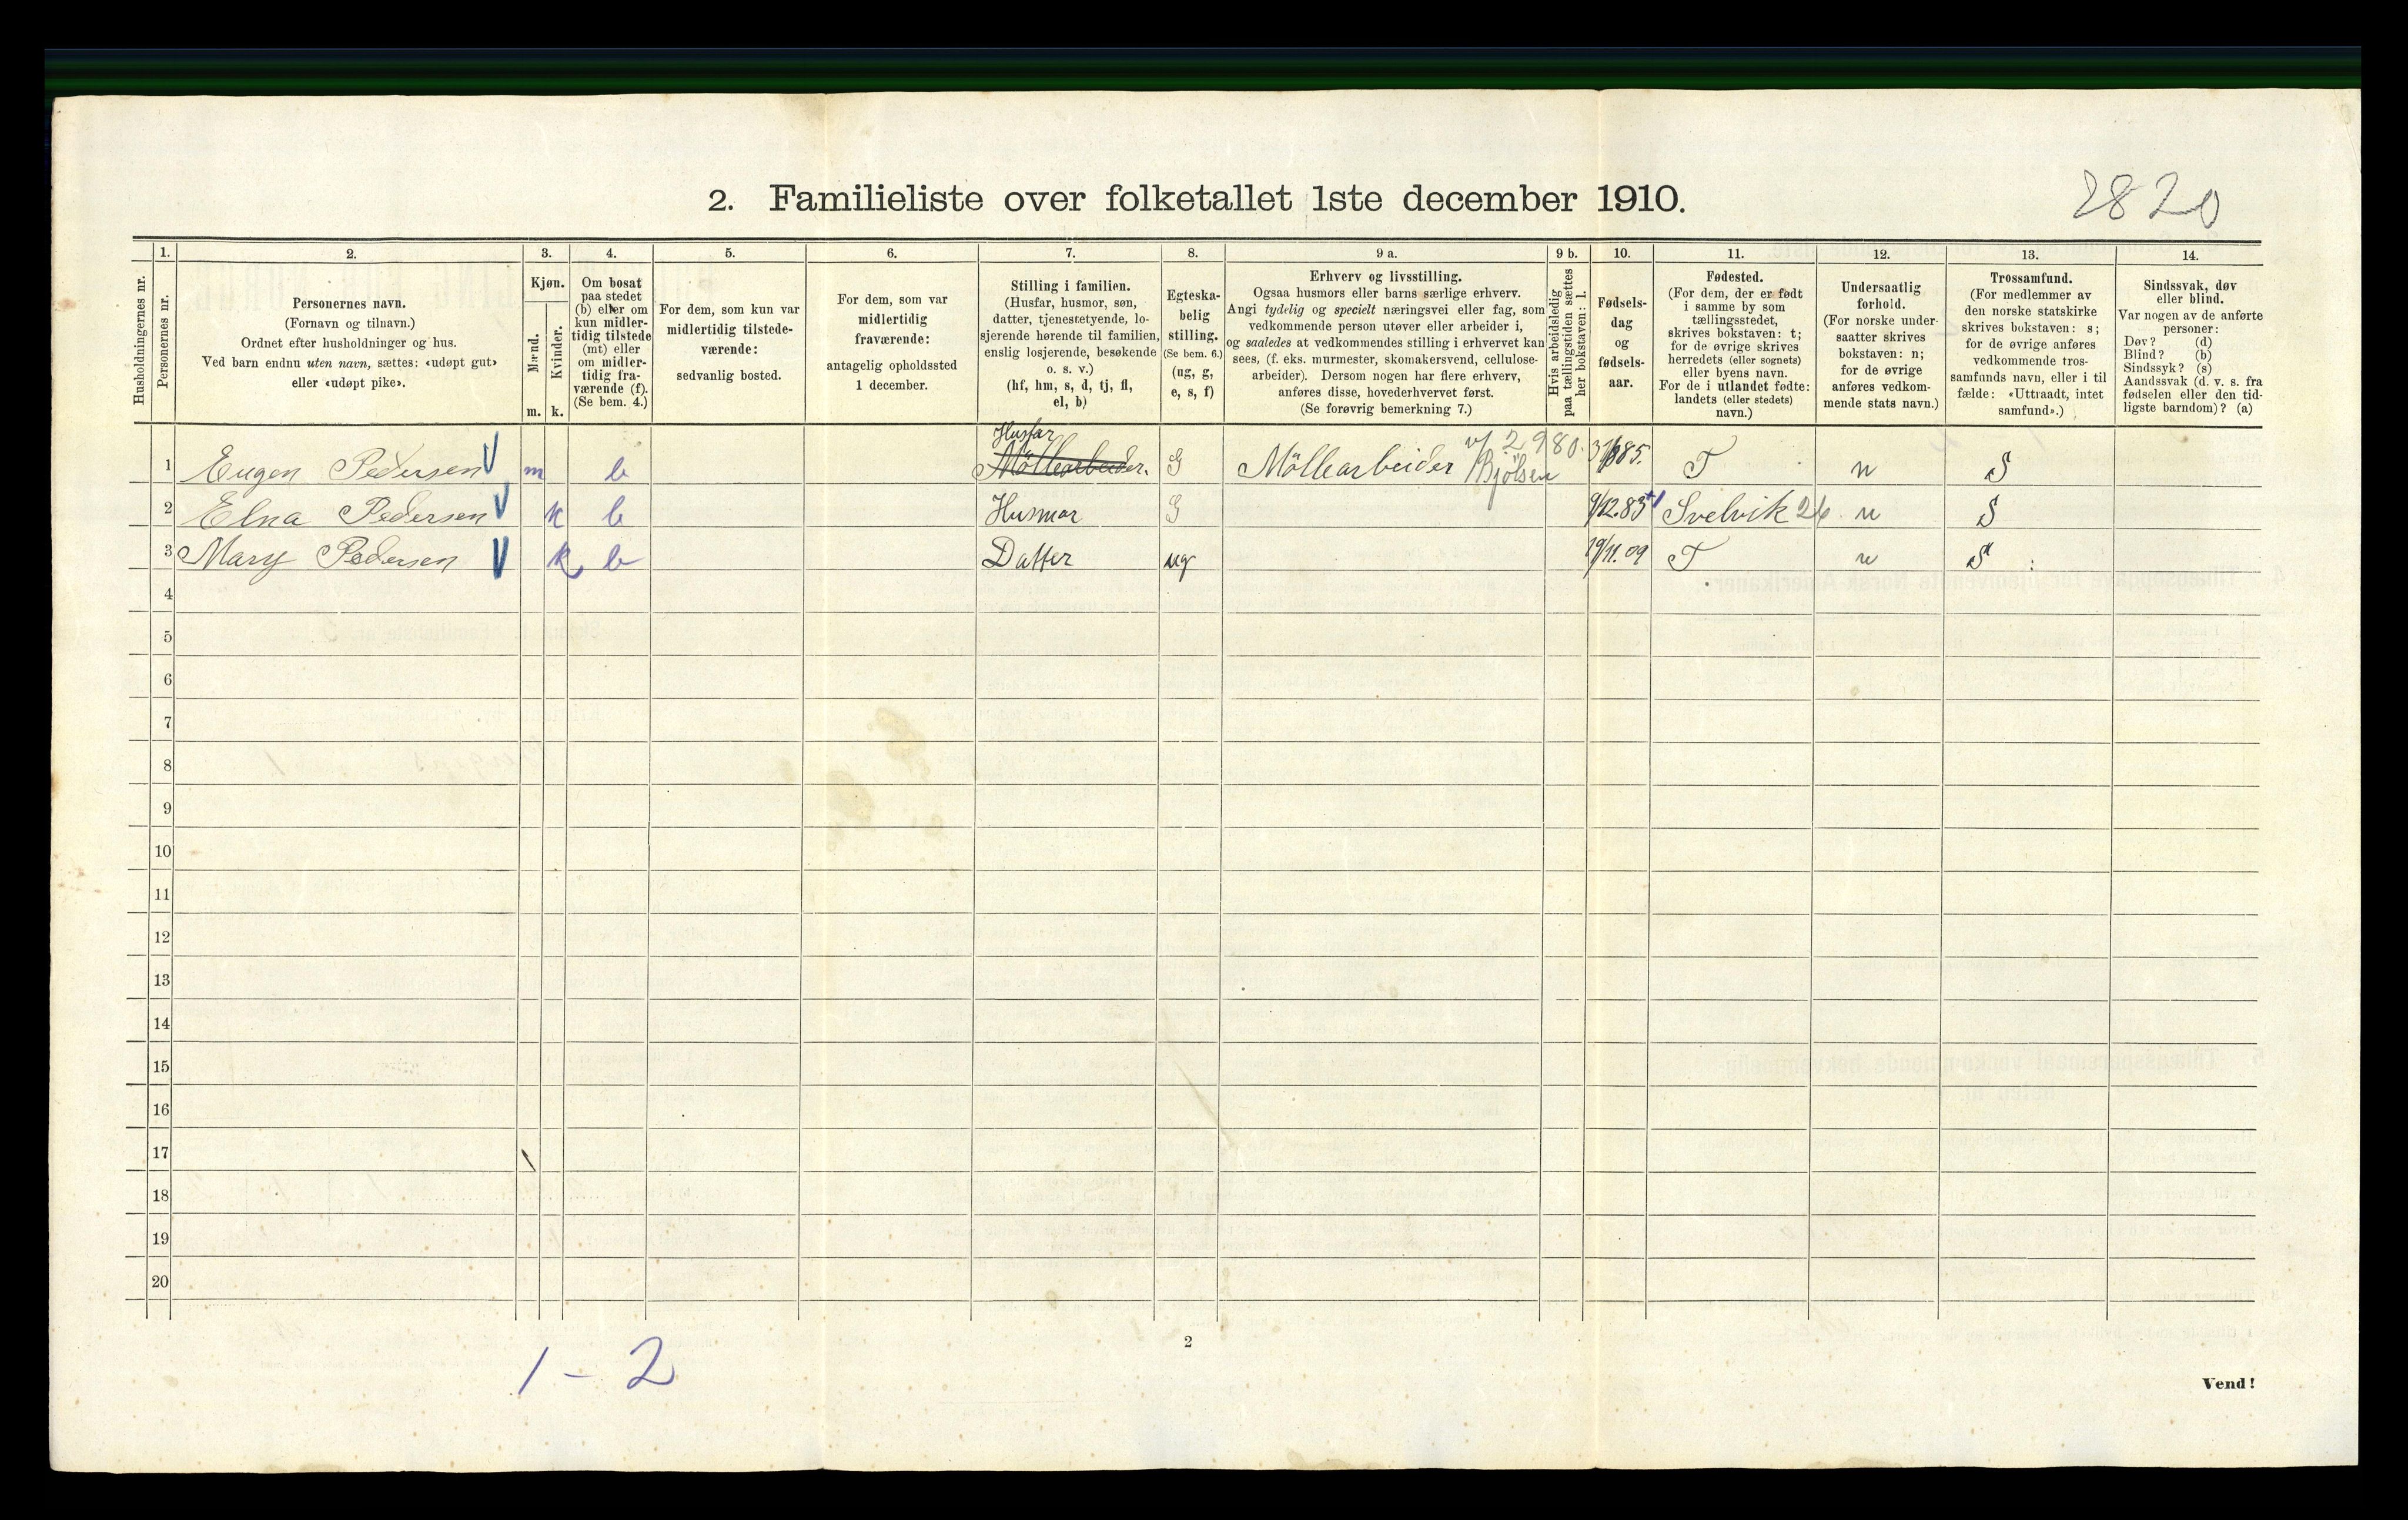 2. Familieliste over folketallet 1ste december 1910.
2820
1. 2. 3. 4. 5. 6. 7. 8. 9 a. 9 b. 10. 11. 12. 13. 14.
Husholdningernes nr.
Personernes nr.
Personernes navn.
(Fornavn og tilnavn.)
Ordnet efter husholdninger og hus.
Ved barn endnu uten navn, sættes: «udøpt gut»
eller «udøpt pike».
Kjøn.
Mænd.
Kvinder.
m. k.
Om bosat
paa stedet
(b) eller om
kun midler-
tidig tilstede
(mt) eller
om midler-
tidig fra-
værende (f).
(Se bem. 4.)
For dem, som kun var
midlertidig tilstede-
værende:
sedvanlig bosted.
For dem, som var
midlertidig
fraværende:
antagelig opholdssted
1 december.
Stilling i familien.
(Husfar, husmor, søn,
datter, tjenestetyende, lo-
sjerende hørende til familien,
enslig losjerende, besøkende
o. s. v.)
(hf, hm, s, d, tj, fl,
el, b)
Egteska-
belig
stilling.
(Se bem. 6.)
(ug, g,
e, s, f)
Erhverv og livsstilling.
Ogsaa husmors eller barns særlige erhverv.
Angi tydelig og specielt næringsvei eller fag, som
vedkommende person utøver eller arbeider i,
og saaledes at vedkommendes stilling i erhvervet kan
sees, (f. eks. murmester, skomakersvend, cellulose-
arbeider). Dersom nogen har flere erhverv,
anføres disse, hovederhvervet først.
(Se forøvrig bemerkning 7.)
Hvis arbeidsledig
paa tællingstiden sættes
her bokstaven: l.
Fødsels-
dag
og
fødsels-
aar.
Fødested.
(For dem, der er født
i samme by som
tællingsstedet,
skrives bokstaven: t;
for de øvrige skrives
herredets (eller sognets)
eller byens navn.
For de i utlandet fødte:
landets (eller stedets)
navn.)
Undersaatlig
forhold.
(For norske under-
saatter skrives
bokstaven: n;
for de øvrige
anføres vedkom-
mende stats navn.)
Trossamfund.
(For medlemmer av
den norske statskirke
skrives bokstaven: s;
for de øvrige anføres
vedkommende tros-
samfunds navn, eller i til
fælde: «Uttraadt, intet
samfund».)
Sindssvak, døv
eller blind.
Var nogen av de anførte
personer:
Døv? (d)
Blind? (b)
Sindssyk? (s)
Aandssvak (d. v. s. fra
fødselen eller den tid-
ligste barndom)? (a)
Husfar v/ 2980.
1 Eugen Pedersen V m b Möllearbeider. G Möllearbeider Bjölsen T n S
2 Elna Pedersen V k b Husmor G 9/12.83 Svelvik 26 n S
3 Mary Pedersen V k b Datter ug 19/11.09 T n S
4
5
6
7
8
9
10
11
12
13
14
15
16
17
18
19
20
1 - 2
2
Vend!